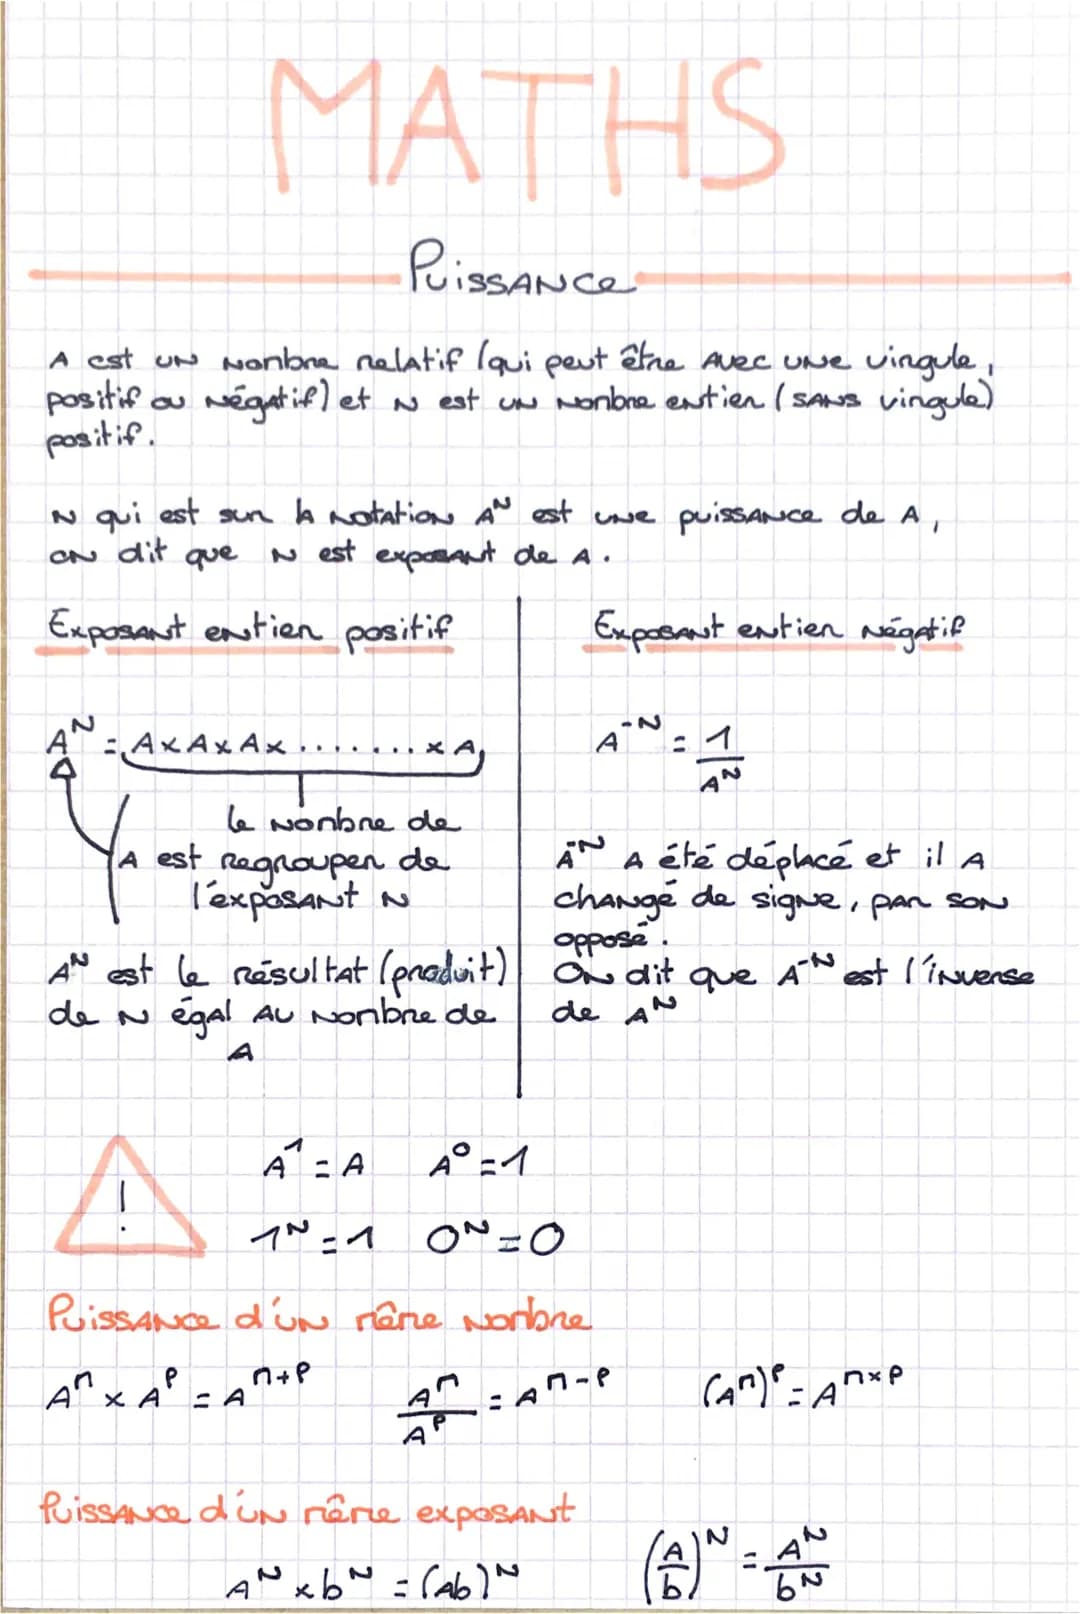 MATHS
Puissance
A est un nombre relatif (qui peut être avec une virgule,
positif ou négatif) et N est un nombre entier (sans virgule)
positif.
N qui est sur la notation Aᴺ est une puissance de A,
on dit que N est exposant de A.
Exposant entier positif
Aᴺ = A x A x A x ........ x A
le nombre de
A est regrouper de
l'exposant N
Aᴺ est le résultat (produit)
de N égal au nombre de
A
Exposant entier négatif
A⁻ᴺ = 1/Aᴺ
A⁻ᴺ A été déplacé et il A
changé de signe, par son
opposé.
On dit que A⁻ᴺ est l'inverse
de Aᴺ
! A¹ = A A⁰ = 1
1ᴺ = 1 0ᴺ = 0
Puissance d'un même nombre
Aᵐ x Aᵖ = Aᵐ⁺ᵖ Aᵐ/Aᵖ = Aᵐ⁻ᵖ (Aᵐ)ᵖ = Aᵐˣᵖ
Puissance d'un même exposant
Aᴺ x bᴺ = (Ab)ᴺ (A/b)ᴺ = Aᴺ/bᴺ